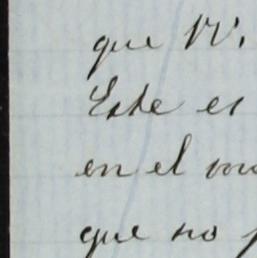 que V.
Este es
en el
que no